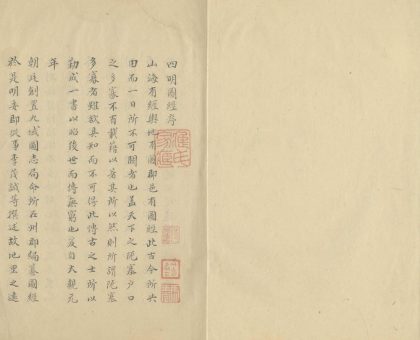 四明圖經序
山海有經輿地有圖郡邑有圖經此古今所共
由而一日所不可闕者也蓋天下之阨塞戶口
之多寡不有載籍以著其所以然則所謂阨塞
多寡者雖欲具知而不可得此博古之士所以
勤成一書以昭後世而傳無窮也爰自大觀元
年
朝廷創置九域圖志局命所在州郡編纂圖經
於是明委郡從事李茂誠等撰述故地里之遠